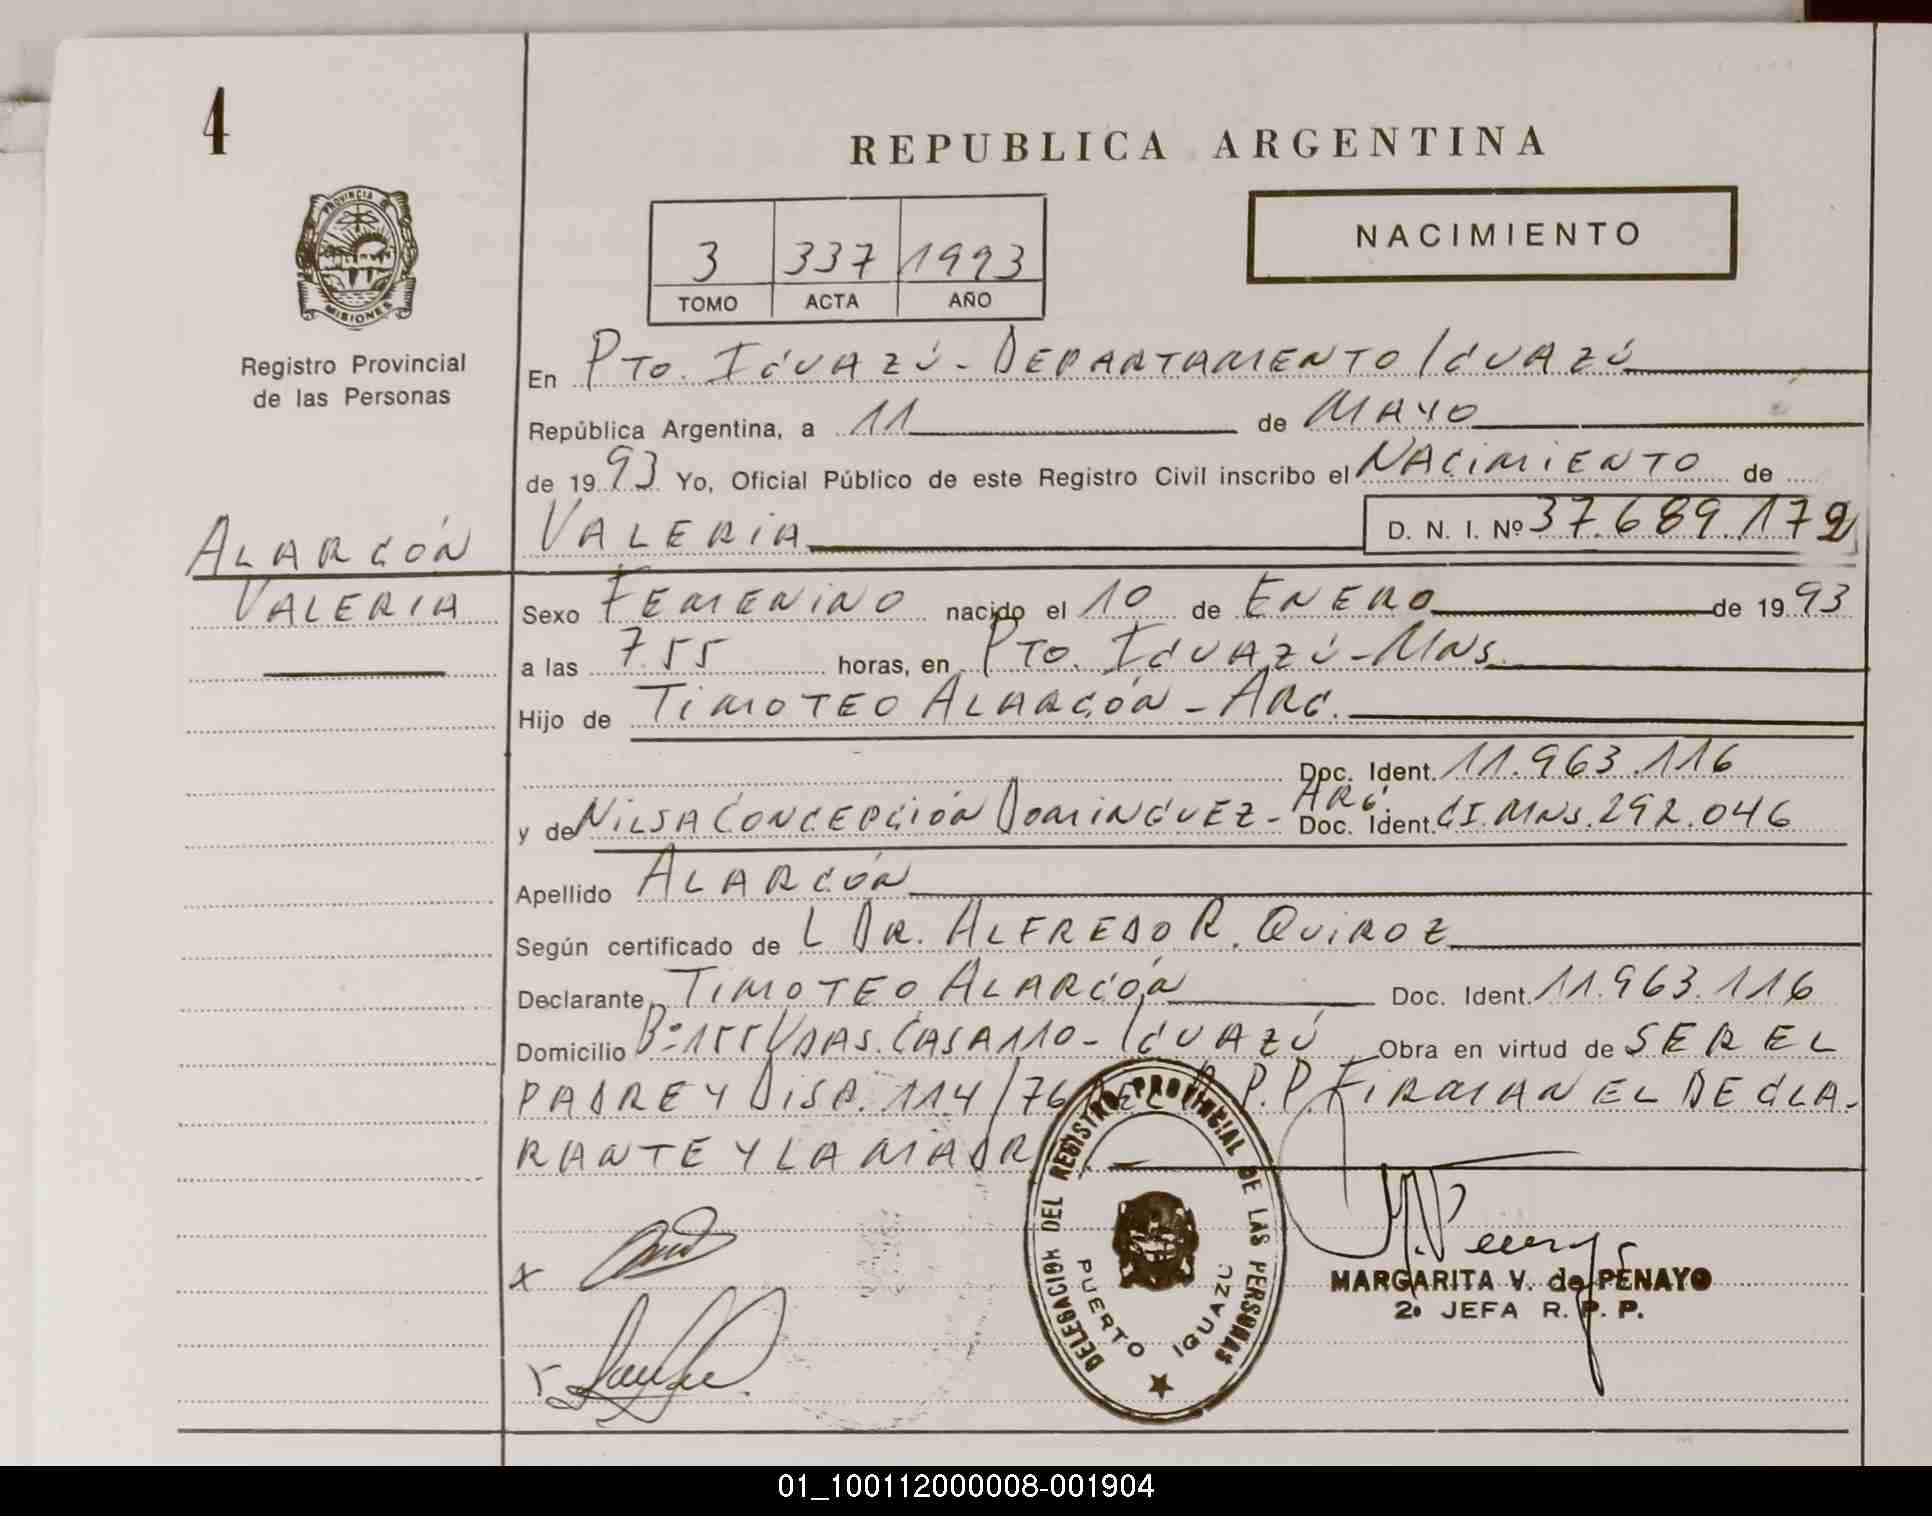 4
REPUBLICA ARGENTINA
PROVINCIA DE MISIONES
3 337 1993
TOMO ACTA AÑO
NACIMIENTO
Registro Provincial
de las Personas
En PTO. IGUAZÚ - DEPARTAMENTO IGUAZÚ
República Argentina, a 11 de MAYO
de 1993 Yo, Oficial Público de este Registro Civil inscribo el NACIMIENTO de
ALARCÓN
VALERIA
VALERIA D. N. I. Nº 37.689.172
Sexo FEMENINO nacido el 10 de ENERO de 1993
a las 7.55 horas, en PTO. IGUAZÚ - MNS.
Hijo de TIMOTEO ALARCÓN - ARG.
Doc. Ident. 11.963.116
y de NILSA CONCEPCIÓN DOMINGUEZ - ARG. Doc. Ident. CI. MNS. 292.046
Apellido ALARCÓN
Según certificado de L DR. ALFREDO R. QUIROZ
Declarante TIMOTEO ALARCÓN Doc. Ident. 11.963.116
Domicilio Bº 155 VDAS. CASA 110 - IGUAZÚ Obra en virtud de SER EL
PADRE Y DISP. 114/76 DEL R.P.P. FIRMAN EL DECLA-
RANTE Y LA MADR
DELEGACION DEL REGISTRO PROVINCIAL DE LAS PERSONAS
PUERTO IGUAZU
X
MARGARITA V. de PENAYO
2º JEFA R. P. P.
01_100112000008-001904